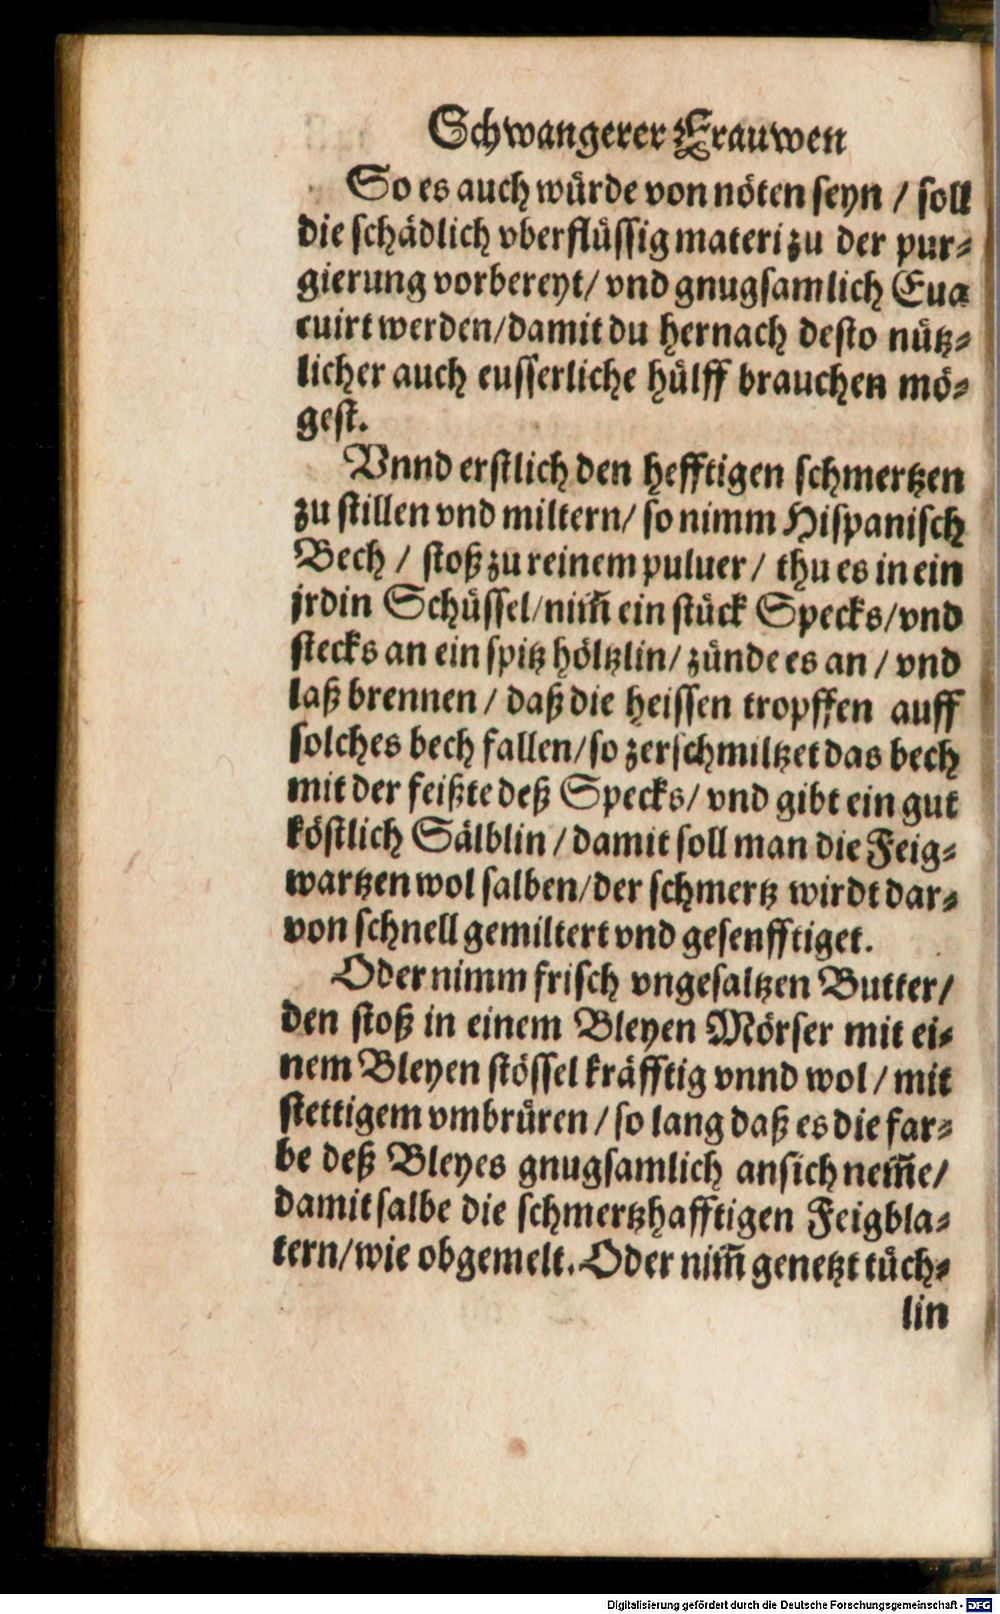 Schwangerer Frauwen
So es auch würde von nöten seyn / soll
die schädlich vberflüssig materi zu der pur⸗
gierung vorbereyt/ vnd gnugsamlich Eua
cuirt werden/damit du hernach desto nütz⸗
licher auch eusserliche hülff brauchen mö⸗
gest.
Vnnd erstlich den hefftigen schmertzen
zu stillen vnd miltern/ so nimm Hispanisch
Bech / stoß zu reinem puluer / thu es in ein
jrdin Schüssel/nim̃ ein stück Specks/vnd
stecks an ein spitz höltzlin/ zünde es an / vnd
laß brennen / daß die heissen tropffen auff
solches bech fallen/so zerschmiltzet das bech
mit der feißte deß Specks/ vnd gibt ein gut
köstlich Sälblin / damit soll man die Feig⸗
wartzen wol salben/der schmertz wirdt dar⸗
von schnell gemiltert vnd gesenfftiget.
Oder nimm frisch vngesaltzen Butter/
den stoß in einem Bleyen Mörser mit ei⸗
nem Bleyen stössel kräfftig vnnd wol / mit
stettigem vmbrüren / so lang daß es die far⸗
be deß Bleyes gnugsamlich ansich nem̃e/
damit salbe die schmertzhafftigen Feigbla⸗
tern/wie obgemelt. Oder nim̃ genetzt tüch⸗
lin
Digitalisierung gefördert durch die Deutsche Forschungsgemeinschaft - DFG